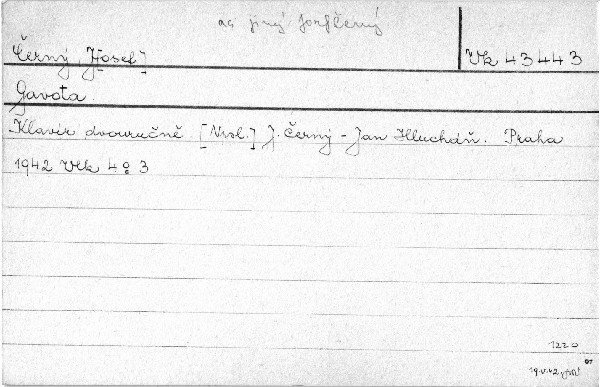 as jiný Josef Černý
Černý, J[osef]
Vk 43443
Gavota.
Klavír dvouručně. [Nrsl.] J. Černý - Jan Hlucháň. Praha
1942 Vlk 4° 3
1220